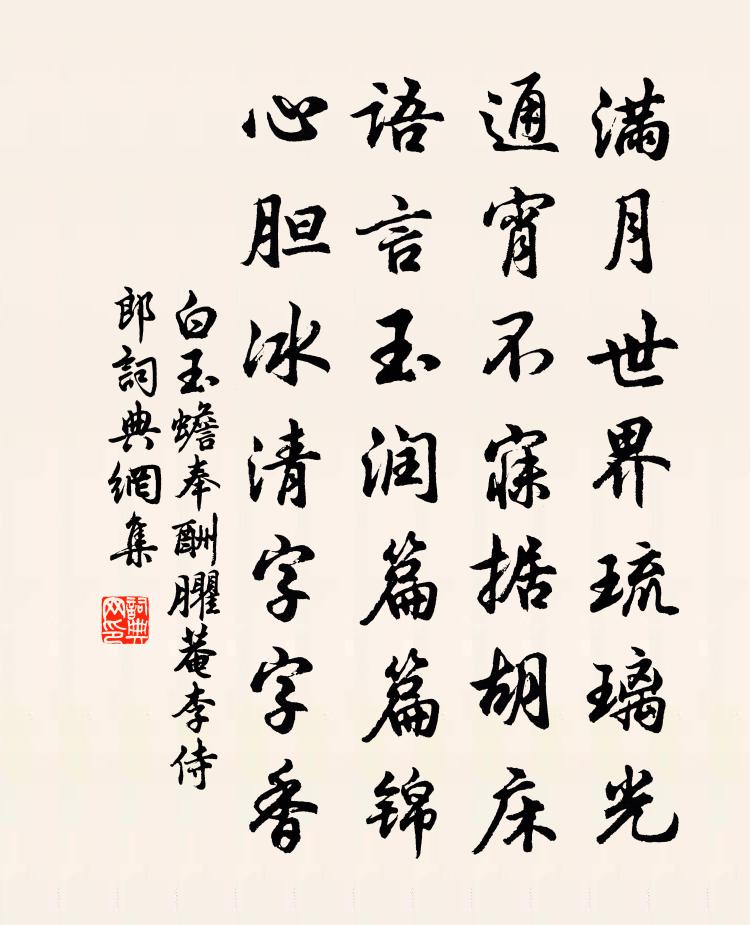 满月世界琉璃光
通宵不寐据胡床
语言玉润篇篇锦
心胆冰清字字香
白玉蟾奉酬臞菴李侍
郎詞典網集
詞典
网印